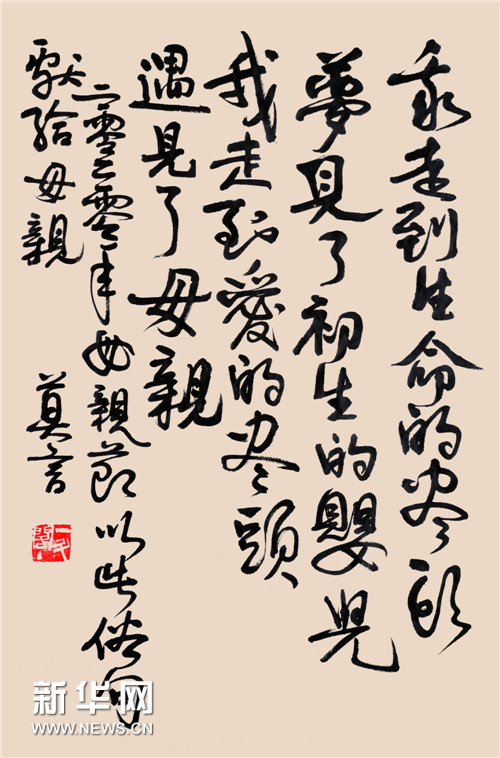 我走到生命的尽頭
夢見了初生的嬰兒
我走到愛的尽頭
遇見了母親
二零二零年母親節以此俗句
獻給母親
莫言
新华网
WWW.NEWS.CN